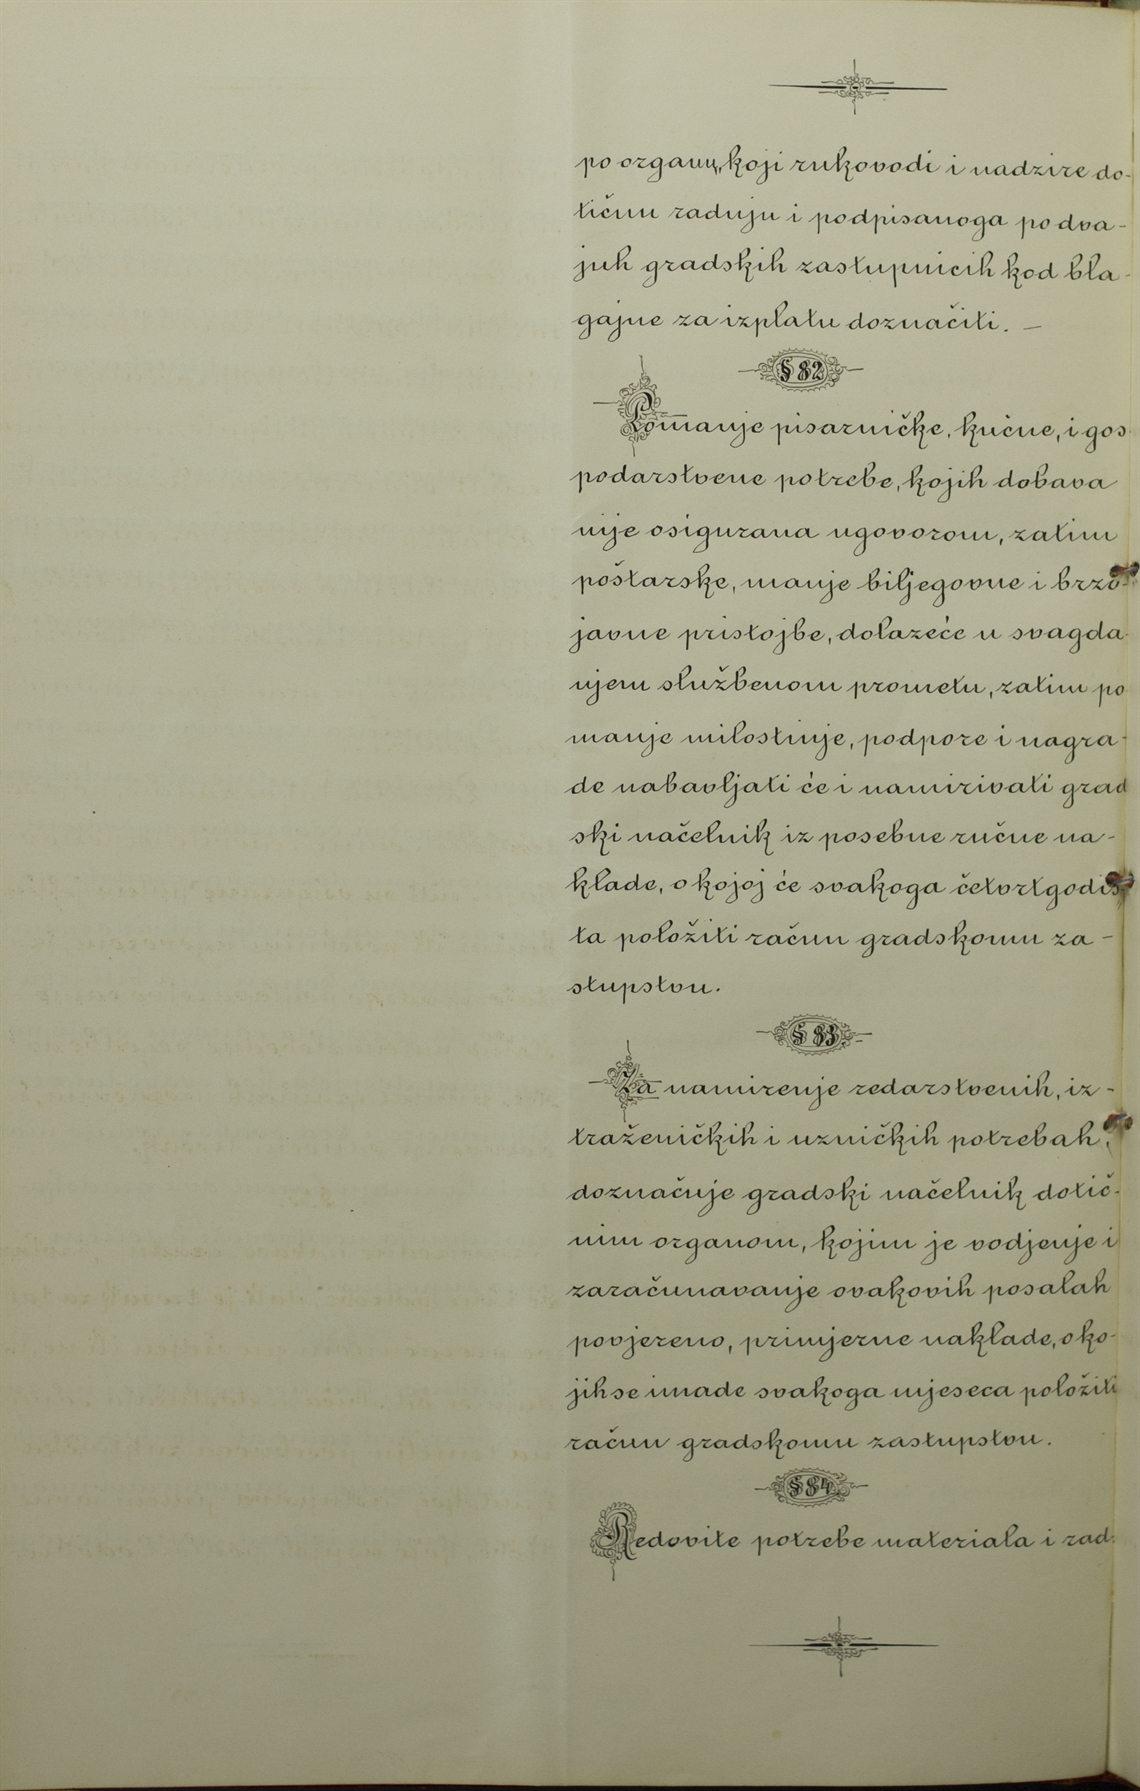 po organu, koji rukovodi i nadzire do-
tičnu radnju i podpisanoga po dva-
juh gradskih zastupnicih kod bla-
gajne za izplatu doznačiti. —
§ 82
Pomanje pisarničke, kućne, i gos
podarstvene potrebe, kojih dobava
nije osigurana ugovorom, zatim
poštarske, manje biljegovne i brzo-
javne pristojbe, dolazeće u svagda-
njem službenom prometu, zatim po
manje milostinje, podpore i nagra-
de nabavljati će i namirivati grad
ski načelnik iz posebne ručne na-
klade, o kojoj će svakoga četvrtgodiš
ta položiti račun gradskomu za-
stupstvu.
§ 83
Za namirenje redarstvenih, iz-
traženičkih i uzničkih potrebah,
doznačuje gradski načelnik dotič-
nim organom, kojim je vodjenje i
zaračunavanje ovakovih posalah
povjereno, primjerne naklade, o ko-
jih se imade svakoga mjeseca položiti
račun gradskomu zastupstvu.
§ 84
Redovite potrebe materiala i rad-